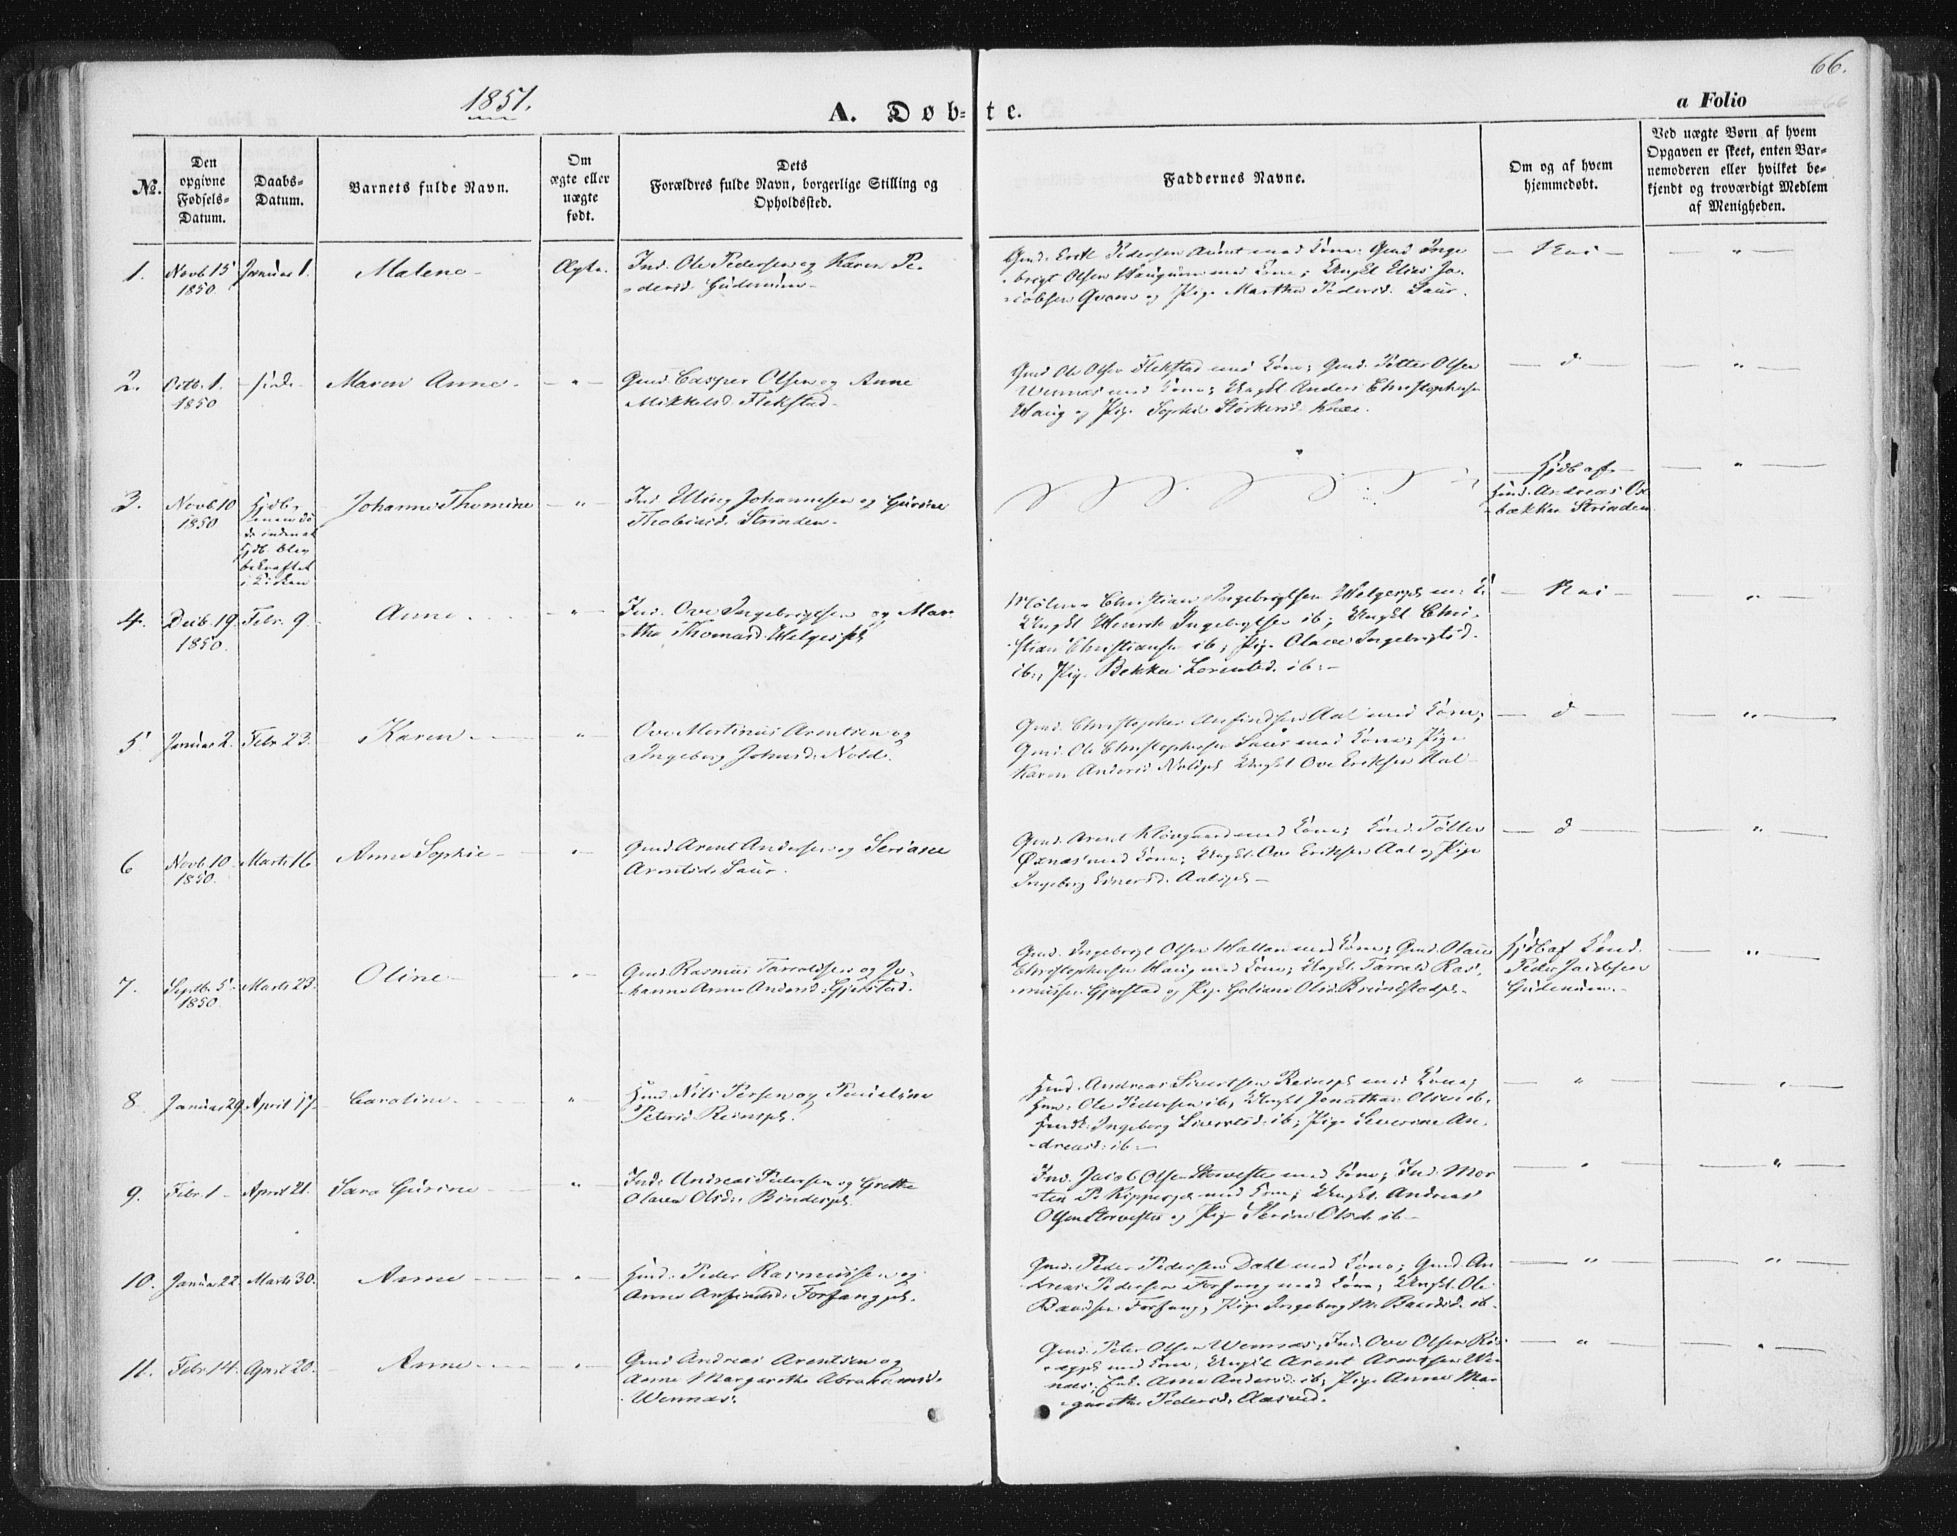 66.
1851.
A. Døb-te.
a Folio
№.
Den
opgivne
Fødsels-
Datum.
Daabs-
Datum.
Barnets fulde Navn.
Om
ægte eller
uægte
født.
Dets
Forældres fulde Navn, borgerlige Stilling og
Opholdssted.
Faddernes Navne.
Om og af hvem
hjemmedøbt.
Ved uægte Børn af hvem
Opgaven er skeet, enten Bar-
nemoderen eller hvilket be-
kjendt og troværdigt Medlem
af Menigheden.
1.
Novb. 15
1850.
Januar 1.
Malene
Ægte.
Ind. Ole Pedersen og Karen Pe-
dersd. Gudemúen
Gmd. Erik Pedersen med Kone; Gmd Inge
brigt Olsen Haugum med Kone; Ungkl Elias Ja-
cobsen Qvam og Pige Martha Pedersd. Saur.
Nei
"
2.
Octb. 1.
1850
Maren Anne
"
Gmd. Casper Olsen og Anne
Mikkelsd. Flekstad
Gmd Ole Olsen Flekstad med Kone; Gmd. Petter Olsen
Wennæs med Kone; Ungkl Anders Christophersen
Haug og Pige Sophie Størkersd.
d
"
3.
Novb 10
1850
Hjdb.
Johanne Thomine
"
Ind. Elling Johannesen og Gurine
Thobiasd. Strinden
Hjdb af
Andreas
Strinden
"
4.
Decb. 19
1850.
Febr. 9
Anne
"
Ind. Ove Ingebrigtsen og Mar-
tha Thomasd Helgespl
Christian Ingebrigtsen Helgespl m. K.
Ungkl Henrik Ingebrigtsen ib; Ungkl Chri-
stian Christiansen ib; Pige Olave Ingebrigtsd.
ib.; Pige Bekka Lorentsd. ib.
Nei
"
5
Januar 2.
Febr. 23.
Karen
"
Ove Martinus Arentsen og
Ingeborg Johnsd. Nold.
Gmd. Christopher Anfindsen Aal med Kone;
Gmd. Ole Christophersen Saur med Kone; Pige
Karen Andersd Ungkl Ove Eriksen Aal
d
"
6
Novb. 10
1850.
Marts 16
Anne Sophie
"
Gmd. Arent Andersen og Seriane
Arentsd. Saur.
Gmd. Arent Kløvgaard med Kone;
Øxnæs med Kone; Ungkl. Ove Eriksen Aal og Pige
Ingeborg Einersd. Aalspl
d
"
7.
Septbr. 5
1850.
Marts 23.
Oline
"
Gmd. Rasmus Tarraldsen og Jo-
hanna Anna Andersd. Gjerstad.
Gmd. Ingebrigt Olsen Hallan med Kone; Gmd. Olaus
Christophersen Haug med Kone; Ungkl. Tarrald Ras-
mussen Gjerstad og Pige Olsd.
Hjdb af
Peder Jacobsen
Gudemúen.
"
8.
Januar 29.
April 17.
Caroline
"
Hmd. Nils Persen og Pauline
Petersd Reinspl.
Hmd. Andreas Sivertsen Reinspl med Kone;
Hmd. Ole Pedersen ib; Ungkl Jonathan Olsen ib.
Ingeborg Sivertsd. ib; Pige Severine An-
dreasd. ib
"
"
9.
Febr. 1
April 21.
Sara Gurine
"
Ind. Andreas Pedersen og Grethe
Olava Olsd. Binderspl.
Ind. Jacob Olsen Storveste med Kone; Ind. Mor-
ten P. med Kone; Ungkl. Andreas
Olsen Storveste og Pige Serine Olsd. ib
"
"
10.
Januar 22.
Marts 30.
Anne
"
Hmd. Peder Rasmussen og
Anne Anfindsd. Forfangpl.
Gmd. Peder Pedersen Dahl med Kone; Gmd. An-
dreas Pedersen Forfang med Kone; Ungkl. Ole
Forfang; Pige Ingeborg M. ib
"
"
11.
Febr. 14.
April 20.
Anne
"
Gmd Andreas Arentsen og
Anne Margaretha Abrahamsd.
Wennæs.
Gmd. Peter Olsen Wennæs; Ind. Ove Olsen
med Kone; Ungkl Arent Arentsen Wen-
næs; Anne Andersd. ib; Pige Anne Mar-
garetha Pedersd. Aasved.
"
"